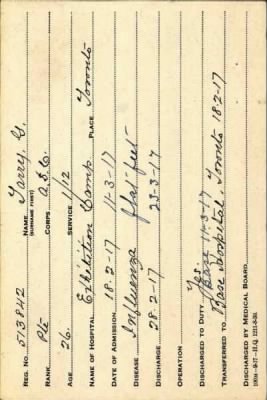 REG. NO. 513842 NAME Tarry, G.
(SURNAME FIRST)
RANK Pte CORPS A.S.C.
AGE 26. SERVICE 1/12
NAME OF HOSPITAL Exhibition Camp PLACE Toronto
DATE OF ADMISSION 18-2-17 11-3-17
DISEASE Influenza flat-feet
DISCHARGE 28-2-17 23-3-17
OPERATION
DISCHARGED TO DUTY Yes.
TRANSFERRED TO Base Hospital, Toronto 18-2-17
DISCHARGED BY MEDICAL BOARD